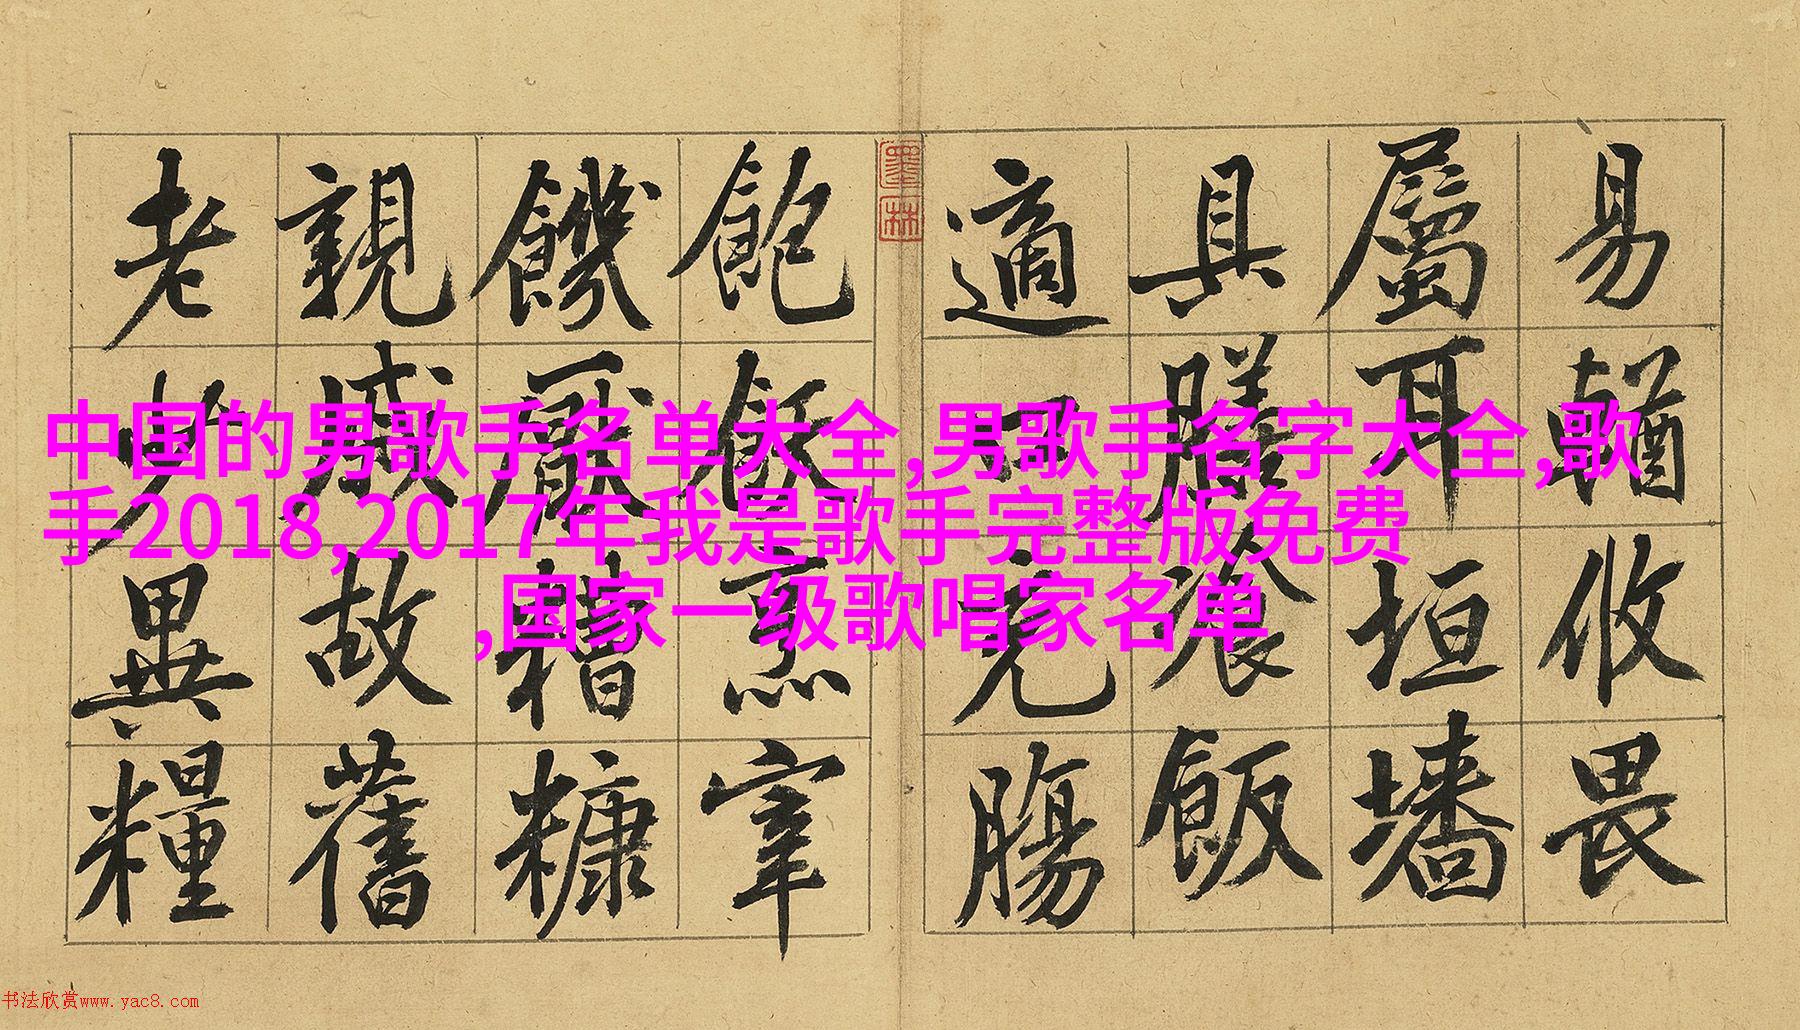 易輶攸畏
屬耳垣墻
具膳飡飯
適口充腸
墨林
飽飫烹宰
饑厭糟糠
親戚故舊
老少異糧
中国的男歌手名单大全,男歌手名字大全,歌
手2018,2017年我是歌手完整版免费
,国家一级歌唱家名单
书法欣赏www.yac8.com